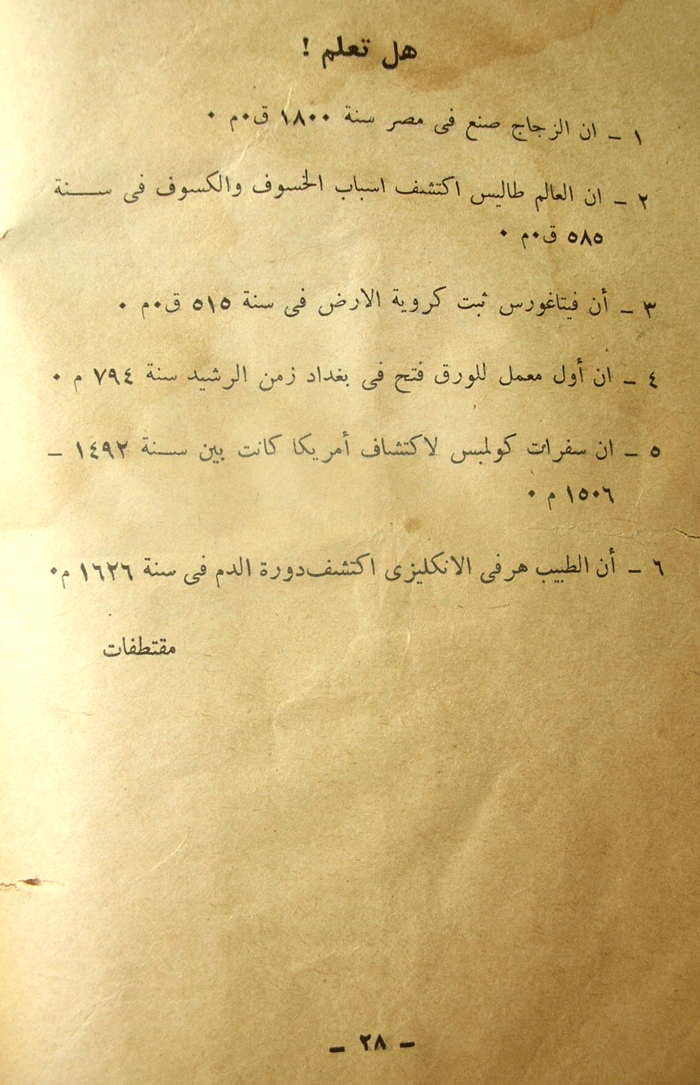 هل تعلم !
١ ـ ان الزجاج صنع فى مصر سنة ١٨٠٠ ق٠م ٠
٢ ـ ان العالم طاليس اكتشف اسباب الخسوف والكسوف فى ســـنة
٥٨٥ ق٠م ٠
٣ ـ أن فيتاغورس ثبت كروية الارض فى سنة ٥١٥ ق٠م ٠
٤ ـ ان أول معمل للورق فتح فى بغداد زمن الرشيد سنة ٧٩٤ م ٠
٥ ـ ان سفرات كولمبس لاكتشاف أمريكا كانت بين ســنة ١٤٩٢ ـ
١٥٠٦ م ٠
٦ ـ أن الطبيب هرفى الانكليزى اكتشف دورة الدم فى سنة ١٦٢٦ م٠
مقتطفات
ـ ٢٨ ـ